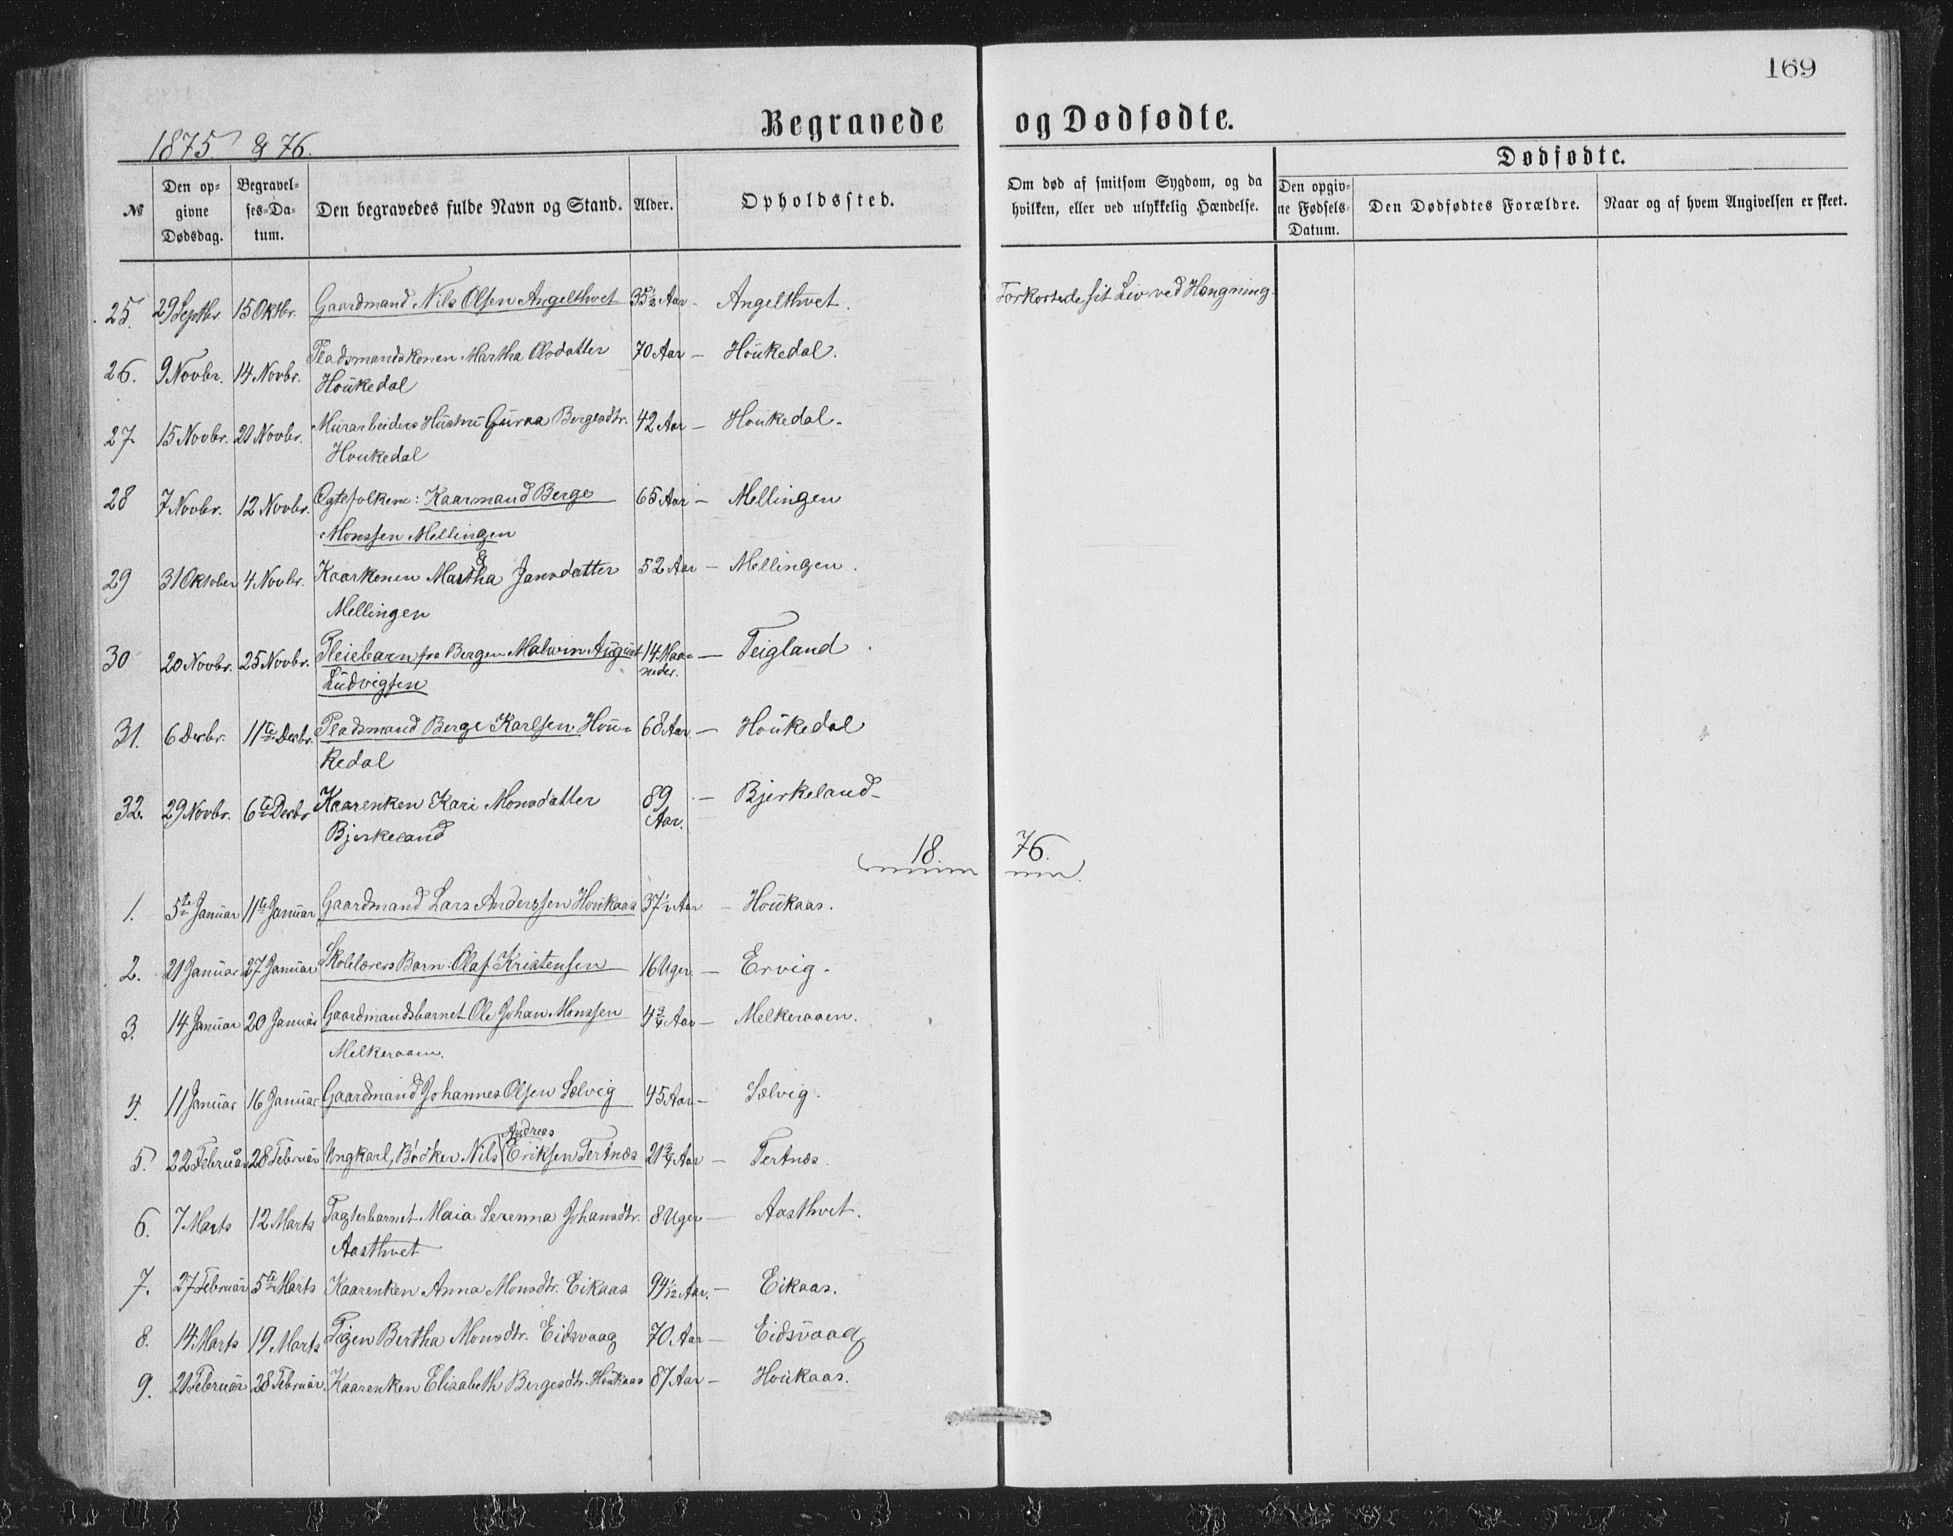 169
Begravede og Dødfødte.
1875 & 76.
Dødfødte.
№ Den opgivne Dødsdag. Begravelses-Datum. Den begravedes fulde Navn og Stand. Alder. Opholdssted. Om død af smitsom Sygdom, og da hvilken, eller ved ulykkelig Hændelse. Den opgivne Fødsels-Datum. Den Dødfødtes Forældre. Naar og af hvem Angivelsen er skeet.
25. 29 Septbr. 15 Oktbr. Gaardmand Nils Olsen Angelthvet 35½ Aar - Angelthvet. Forkortede sit Liv ved Hængning.
26. 9 Novbr. 14 Novbr. Pladsmandskonen Martha Olsdatter 70 Aar - Houkedal.
Houkedal
27. 15 Novbr. 20 Novbr. Murarbeiders Hustru Guroa Bergesdtr. 42 Aar - Houkedal.
Houkedal
28 7 Novbr. 12 Novbr. Ægtefolkene: Kaarmand Berge 65 Aar - Mellingen
Monssen Mellingen
&
29 31 Oktober 4 Novbr. Kaarkonen Martha Jansdatter 52 Aar - Mellingen.
Mellingen
30 20 Novbr. 25 Novbr. Pleiebarn fra Bergen Malvin August 14 Maa- - Teigland.
Ludvigsen neder.
31. 6 Decbr. 11te Decbr. Pladsmand Berge Karlsen Hou- 68 Aar - Houkedal
kedal
32. 29 Novbr. 6te Decbr Kaarenken Kari Monsdatter 89 - Bjerkeland -
Bjerkeland Aar.
18 76.
1. 5te Januar 11te Januar Gaardmand Lars Anderssen Houkaas 37½ Aar - Houkaas.
2. 21 Januar 27 Januar Skolelærers Barn Olaf Kristensen 16 Uger - Ervig.
3. 14 Januar 20 Januar Gaardmandsbarnet Ole Johan Monssen 4¾ Aar - Melkeraaen.
Melkeraaen.
4. 11 Januar 16 Januar Gaardmand Johannes Olsen Sælvig 45 Aar - Sælvig.
Andreas
5. 22 Februar 28 Februar Ungkarl, Bødker Nils Eriksen Tertnæs 21¾ Aar - Tertnæs.
6. 7 Marts 12 Marts Fogterbarnet Maia Serenna Johansdtr. 8 Uger - Aasthvet.
Aasthvet
7. 27 Februar 5te Marts Kaarenken Anna Monsdtr. Eikaas 94 1/12 Aar. - Eikaas.
8. 14 Marts 19 Marts Pigen Bertha Monsdtr. Eidsvaag 70 Aar - Eidsvaag
9. 21 Februar 28 Februar Kaarenken Elisabeth Bergesdtr. Houkaas 87 Aar - Houkaas.